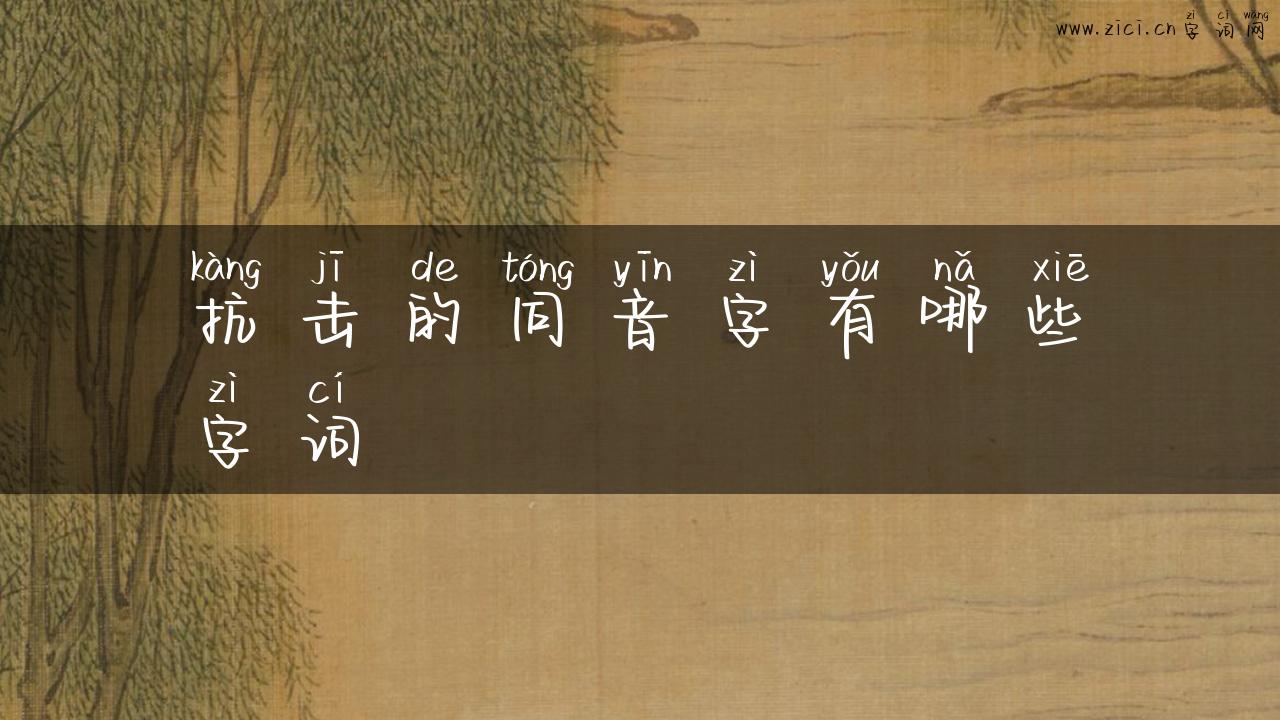 zì cí wǎng
www.zici.cn字词网
kàng jī de tóng yīn zì yǒu nǎ xiē
抗击的同音字有哪些
zì cí
字词